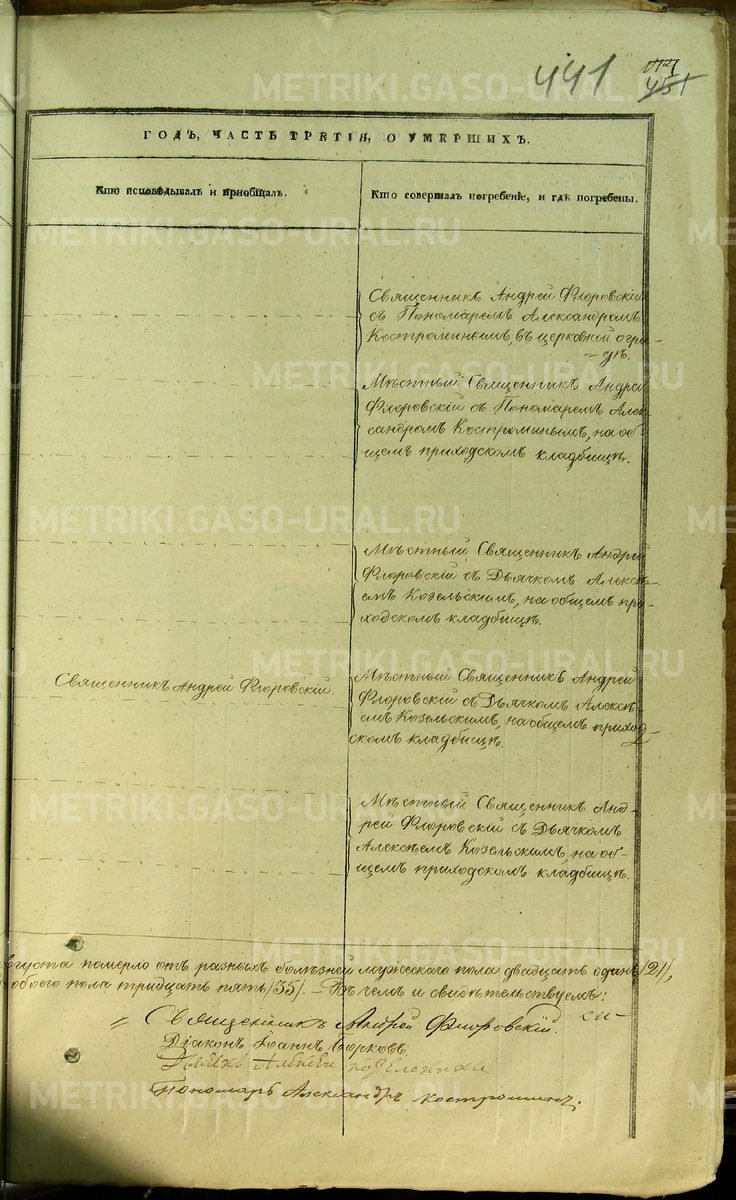 441
451
ГОДЪ, ЧАСТЬ ТРЕТІЯ, О УМЕРШИХЪ.
Кто исповѣдывалъ и приобщалъ.
Кто совершалъ погребеніе, и гдѣ погребены.
Священникъ Андрей Флоровскій
съ Пономаремъ Александромъ
Костроминымъ, въ церковной огра-
дѣ.
Мѣстный Священникъ Андрей
Флоровскій съ Пономаремъ Алек
сандромъ Костроминымъ, на об-
щемъ приходскомъ кладбищѣ.
Мѣстный Священникъ Андрей
Флоровскій съ Дьячкомъ Алексѣ-
емъ Козельскимъ, на общемъ при-
ходскомъ кладбищѣ.
Священникъ Андрей Флоровскій.
Мѣстный Священникъ Андрей
Флоровскій съ Дьячкомъ Алексѣ-
емъ Козельскимъ, на общемъ приход-
скомъ кладбищѣ.
Мѣстный Священникъ Анд-
рей Флоровскій съ Дьячкомъ
Алексѣемъ Козельскимъ, на об-
щемъ приходскомъ кладбищѣ.
вгуста померло отъ разныхъ болѣзней мужескаго пола двадцать одинъ /21/,
обоего пола тридцать пять /35/. – Въ чемъ и свидѣтельствуемъ:
Священникъ Андрей Флоровскій.
Діаконъ Іоаннъ
Пономарь Александръ Костроминъ.
METRIKI.GASO-URAL.RU